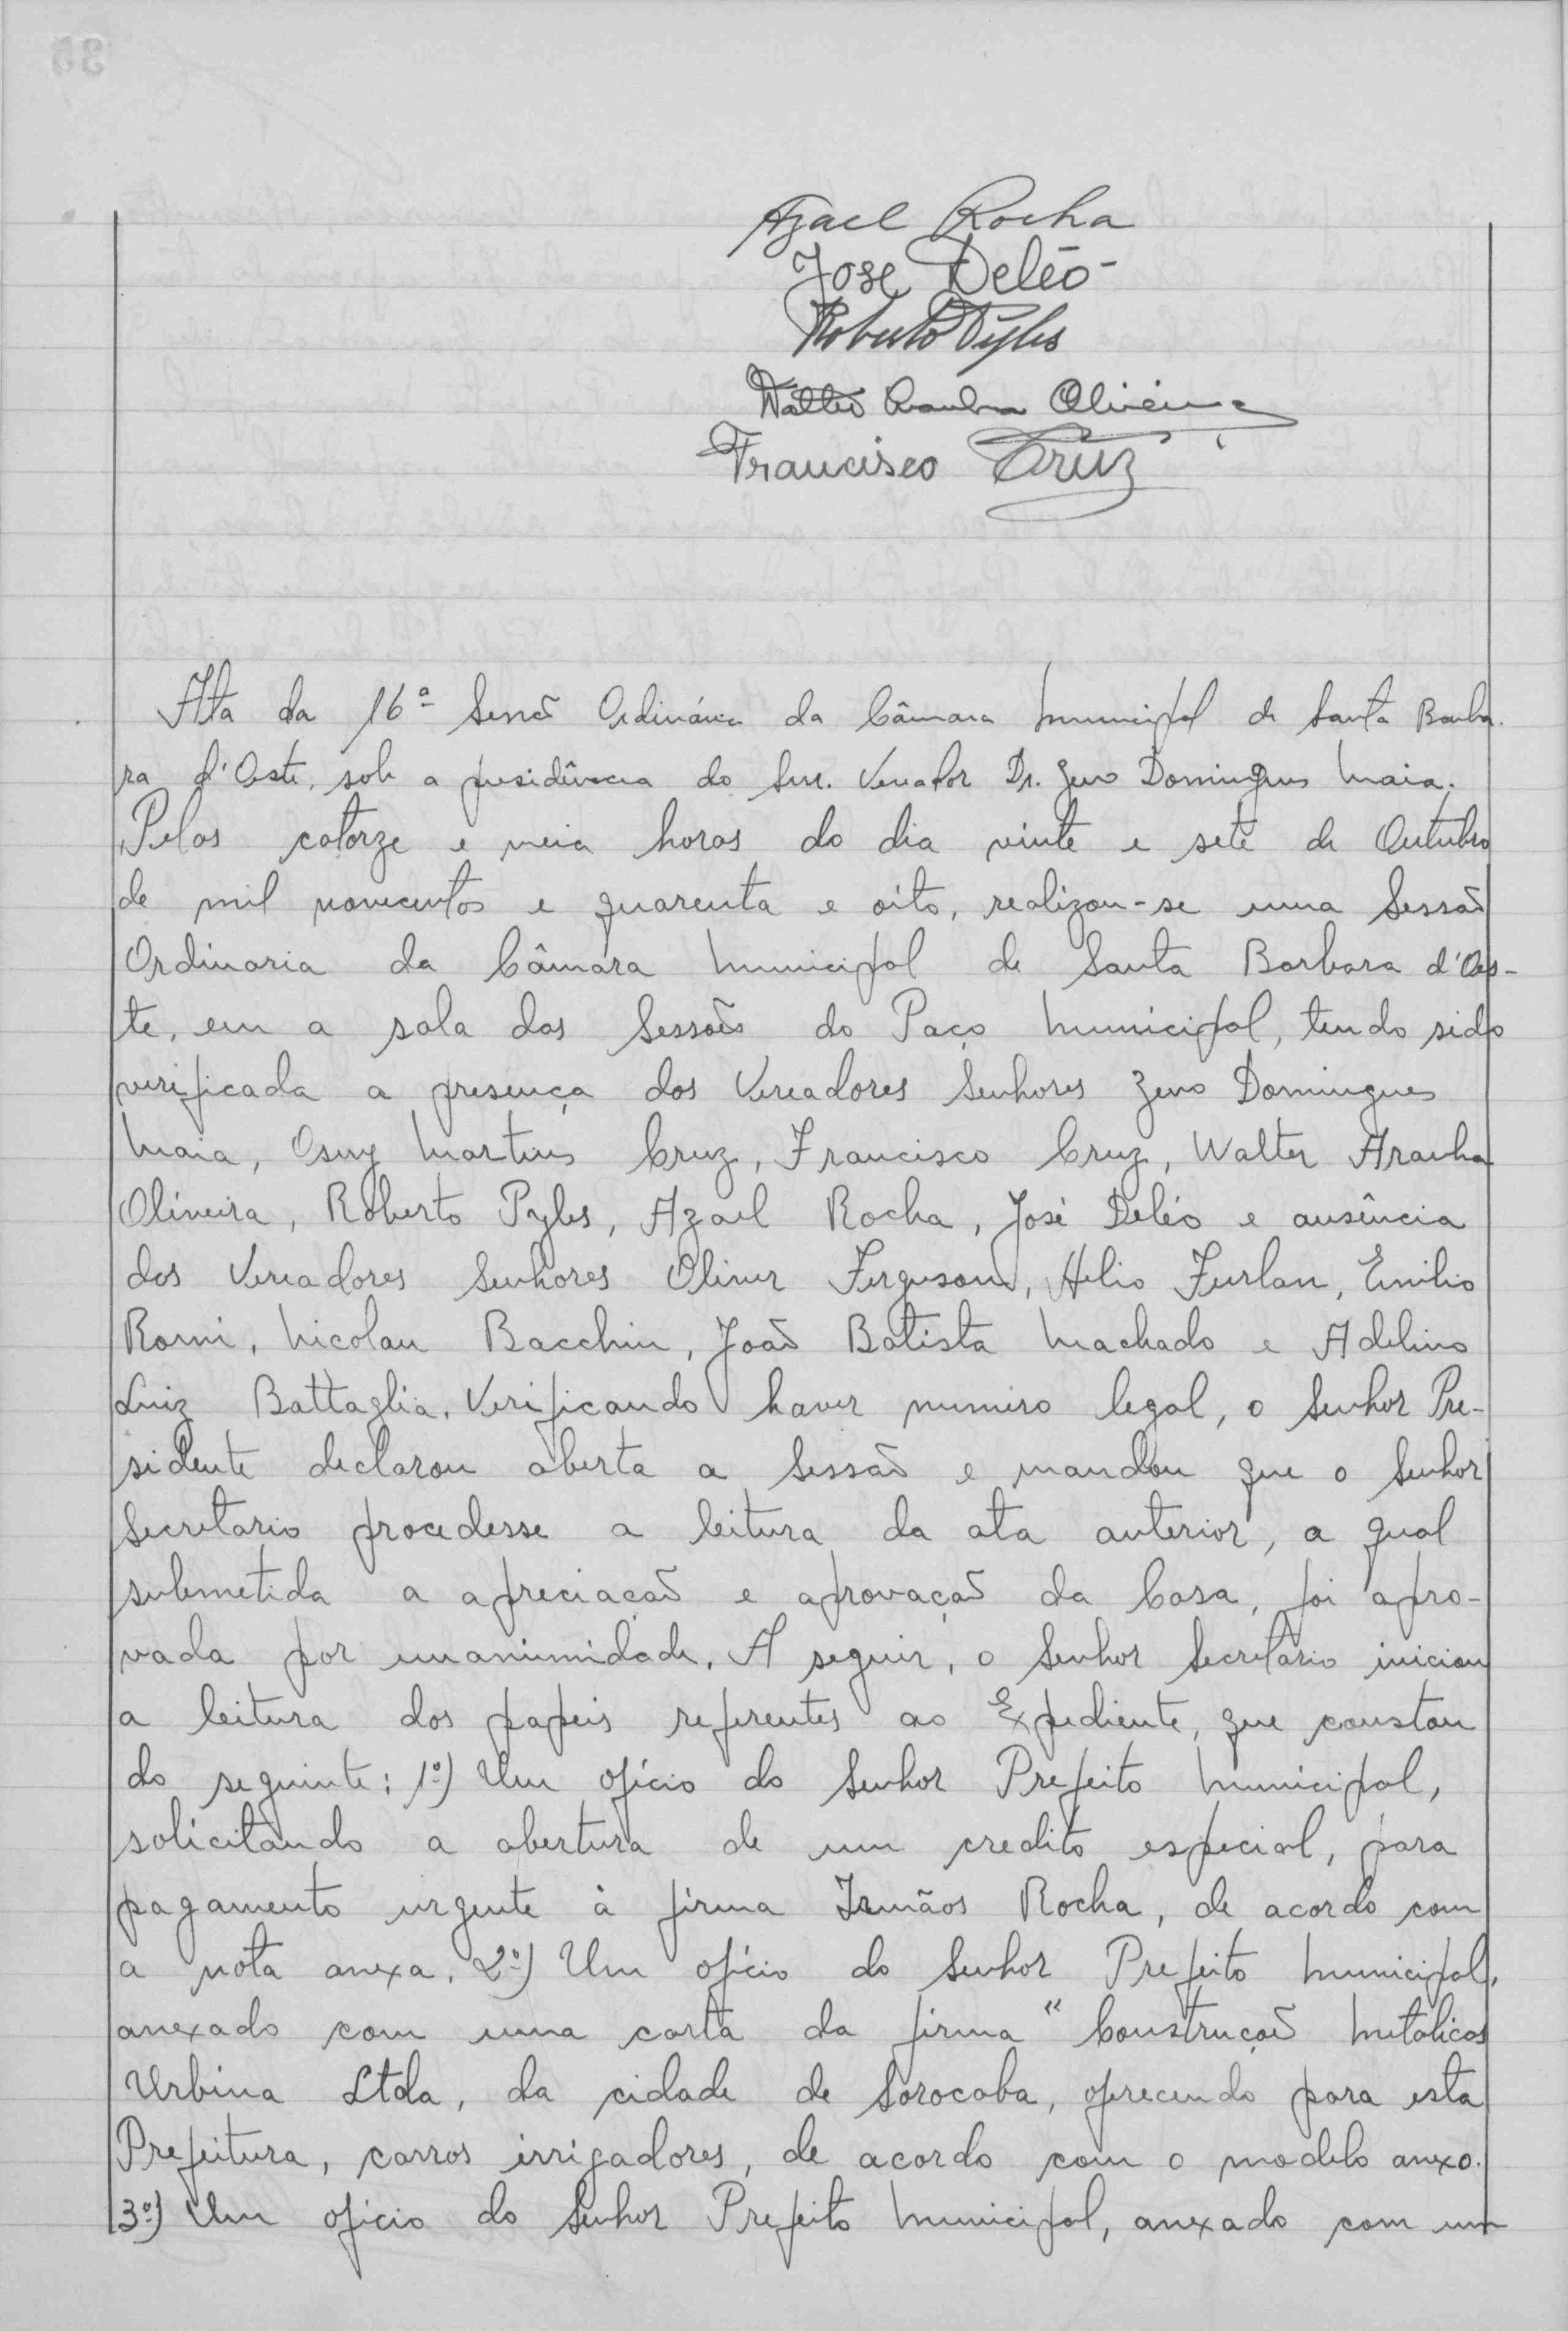 Azael Rocha
José Deléo
Roberto Pyles
Walter Aranha Oliveira
Francisco Cruz
Ata da 16ª Sessão Ordinária da Câmara Municipal de Santa Barba-
ra d'Oeste, sob a presidência do Snr. Vereador Dr. Zeno Domingues Maia.
Pelas catorze e meia horas do dia vinte e sete de Outubro
de mil novecentos e quarenta e oito, realizou-se uma Sessão
Ordinaria da Câmara Municipal de Santa Barbara d'Oes-
te, em a sala das Sessões do Paço Municipal, tendo sido
verificada a presença dos Vereadores Senhores Zeno Domingues
Maia, Osny Martins Cruz, Francisco Cruz, Walter Aranha
Oliveira, Roberto Pyles, Azael Rocha, José Deléo e ausência
dos Vereadores Senhores Oliver Ferguson, Helio Furlan, Emilio
Romi, Nicolau Bacchin, João Batista Machado e Adelino
Luiz Battaglia. Verificando haver numero legal, o Senhor Pre-
sidente declarou aberta a Sessão e mandou que o Senhor
Secretario procedesse a leitura da ata anterior, a qual
submetida a apreciação e aprovação da Casa, foi apro-
vada por unanimidade. A seguir, o Senhor Secretário iniciou
a leitura dos papeis referentes ao Expediente, que constou
do seguinte: 1º) Um ofício do Senhor Prefeito Municipal,
solicitando a abertura de um credito especial, para
pagamento urgente à firma Irmãos Rocha, de acordo com
a nota anexa. 2º) Um ofício do Senhor Prefeito Municipal,
anexado com uma carta da firma "Construção Metalicas
Urbina Ltda, da cidade de Sorocaba, oferecendo para esta
Prefeitura, carros irrigadores, de acordo com o modelo anexo.
3º) Um ofício do Senhor Prefeito Municipal, anexado com um